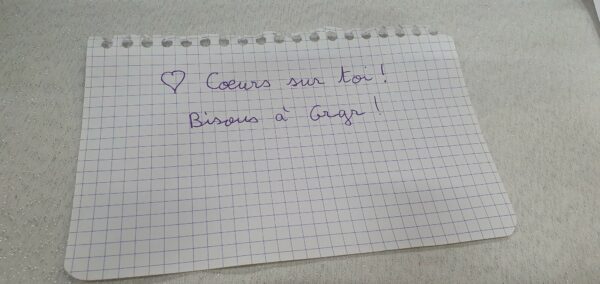 ♡ Cœurs sur toi !
Bisous à Grgr !